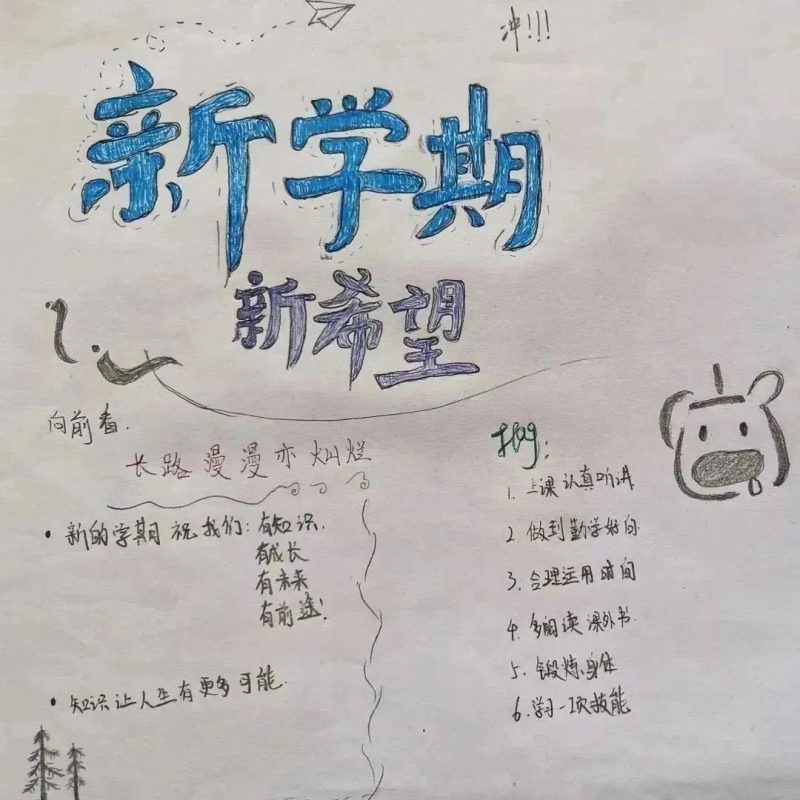 冲!!!
新学期
新希望
向前看.
长路漫漫亦灿烂
• 新的学期 祝我们: 有知识.
有成长
有未来
有前途!
• 知识让人生有更多可能.
flag:
1. 上课认真听讲
2. 做到勤学好问
3. 合理运用时间
4. 多阅读课外书.
5. 锻炼身体
6. 学习一项技能